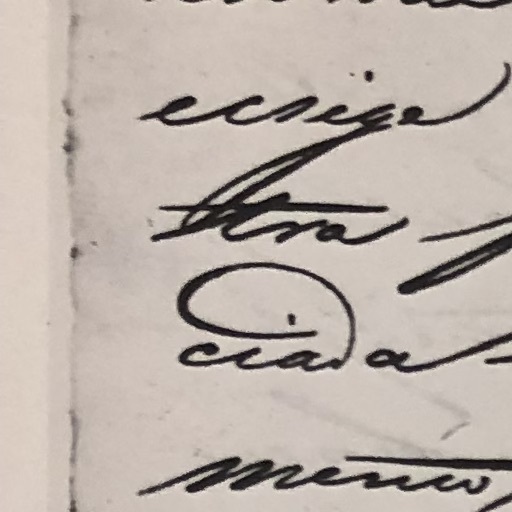 ecsige
tra
ciada
mento